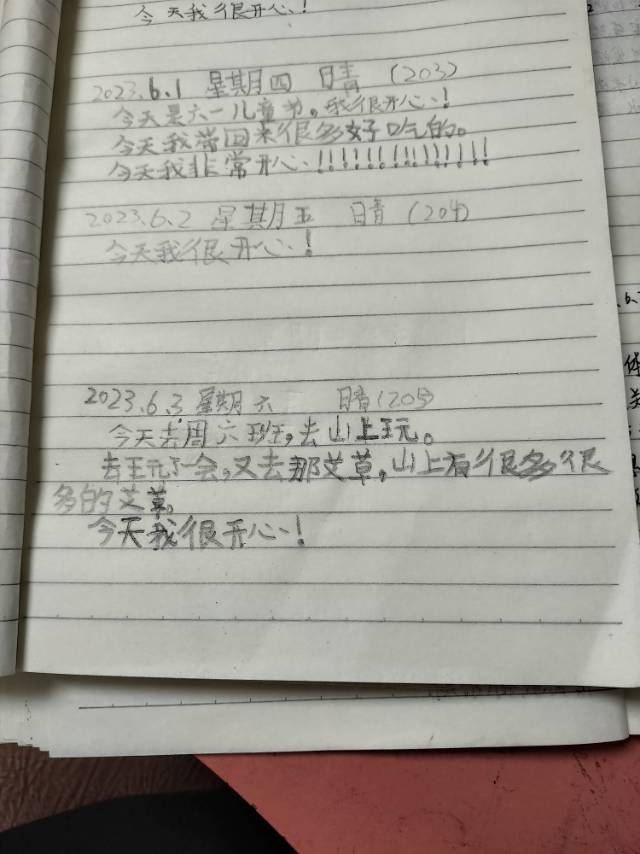 今天我很开心!
2023.6.1 星期四 晴 (203)
今天是六一儿童节。我很开心!
今天我带回来很多好吃的。
今天我非常开心!!!!!!!!!!!!!!!
2023.6.2 星期五 晴 (204)
今天我很开心!
2023.6.3 星期六 晴(205)
今天去周六班,去山上玩。
去玩了一会,又去那艾草,山上有很多很
多的艾草。
今天我很开心!